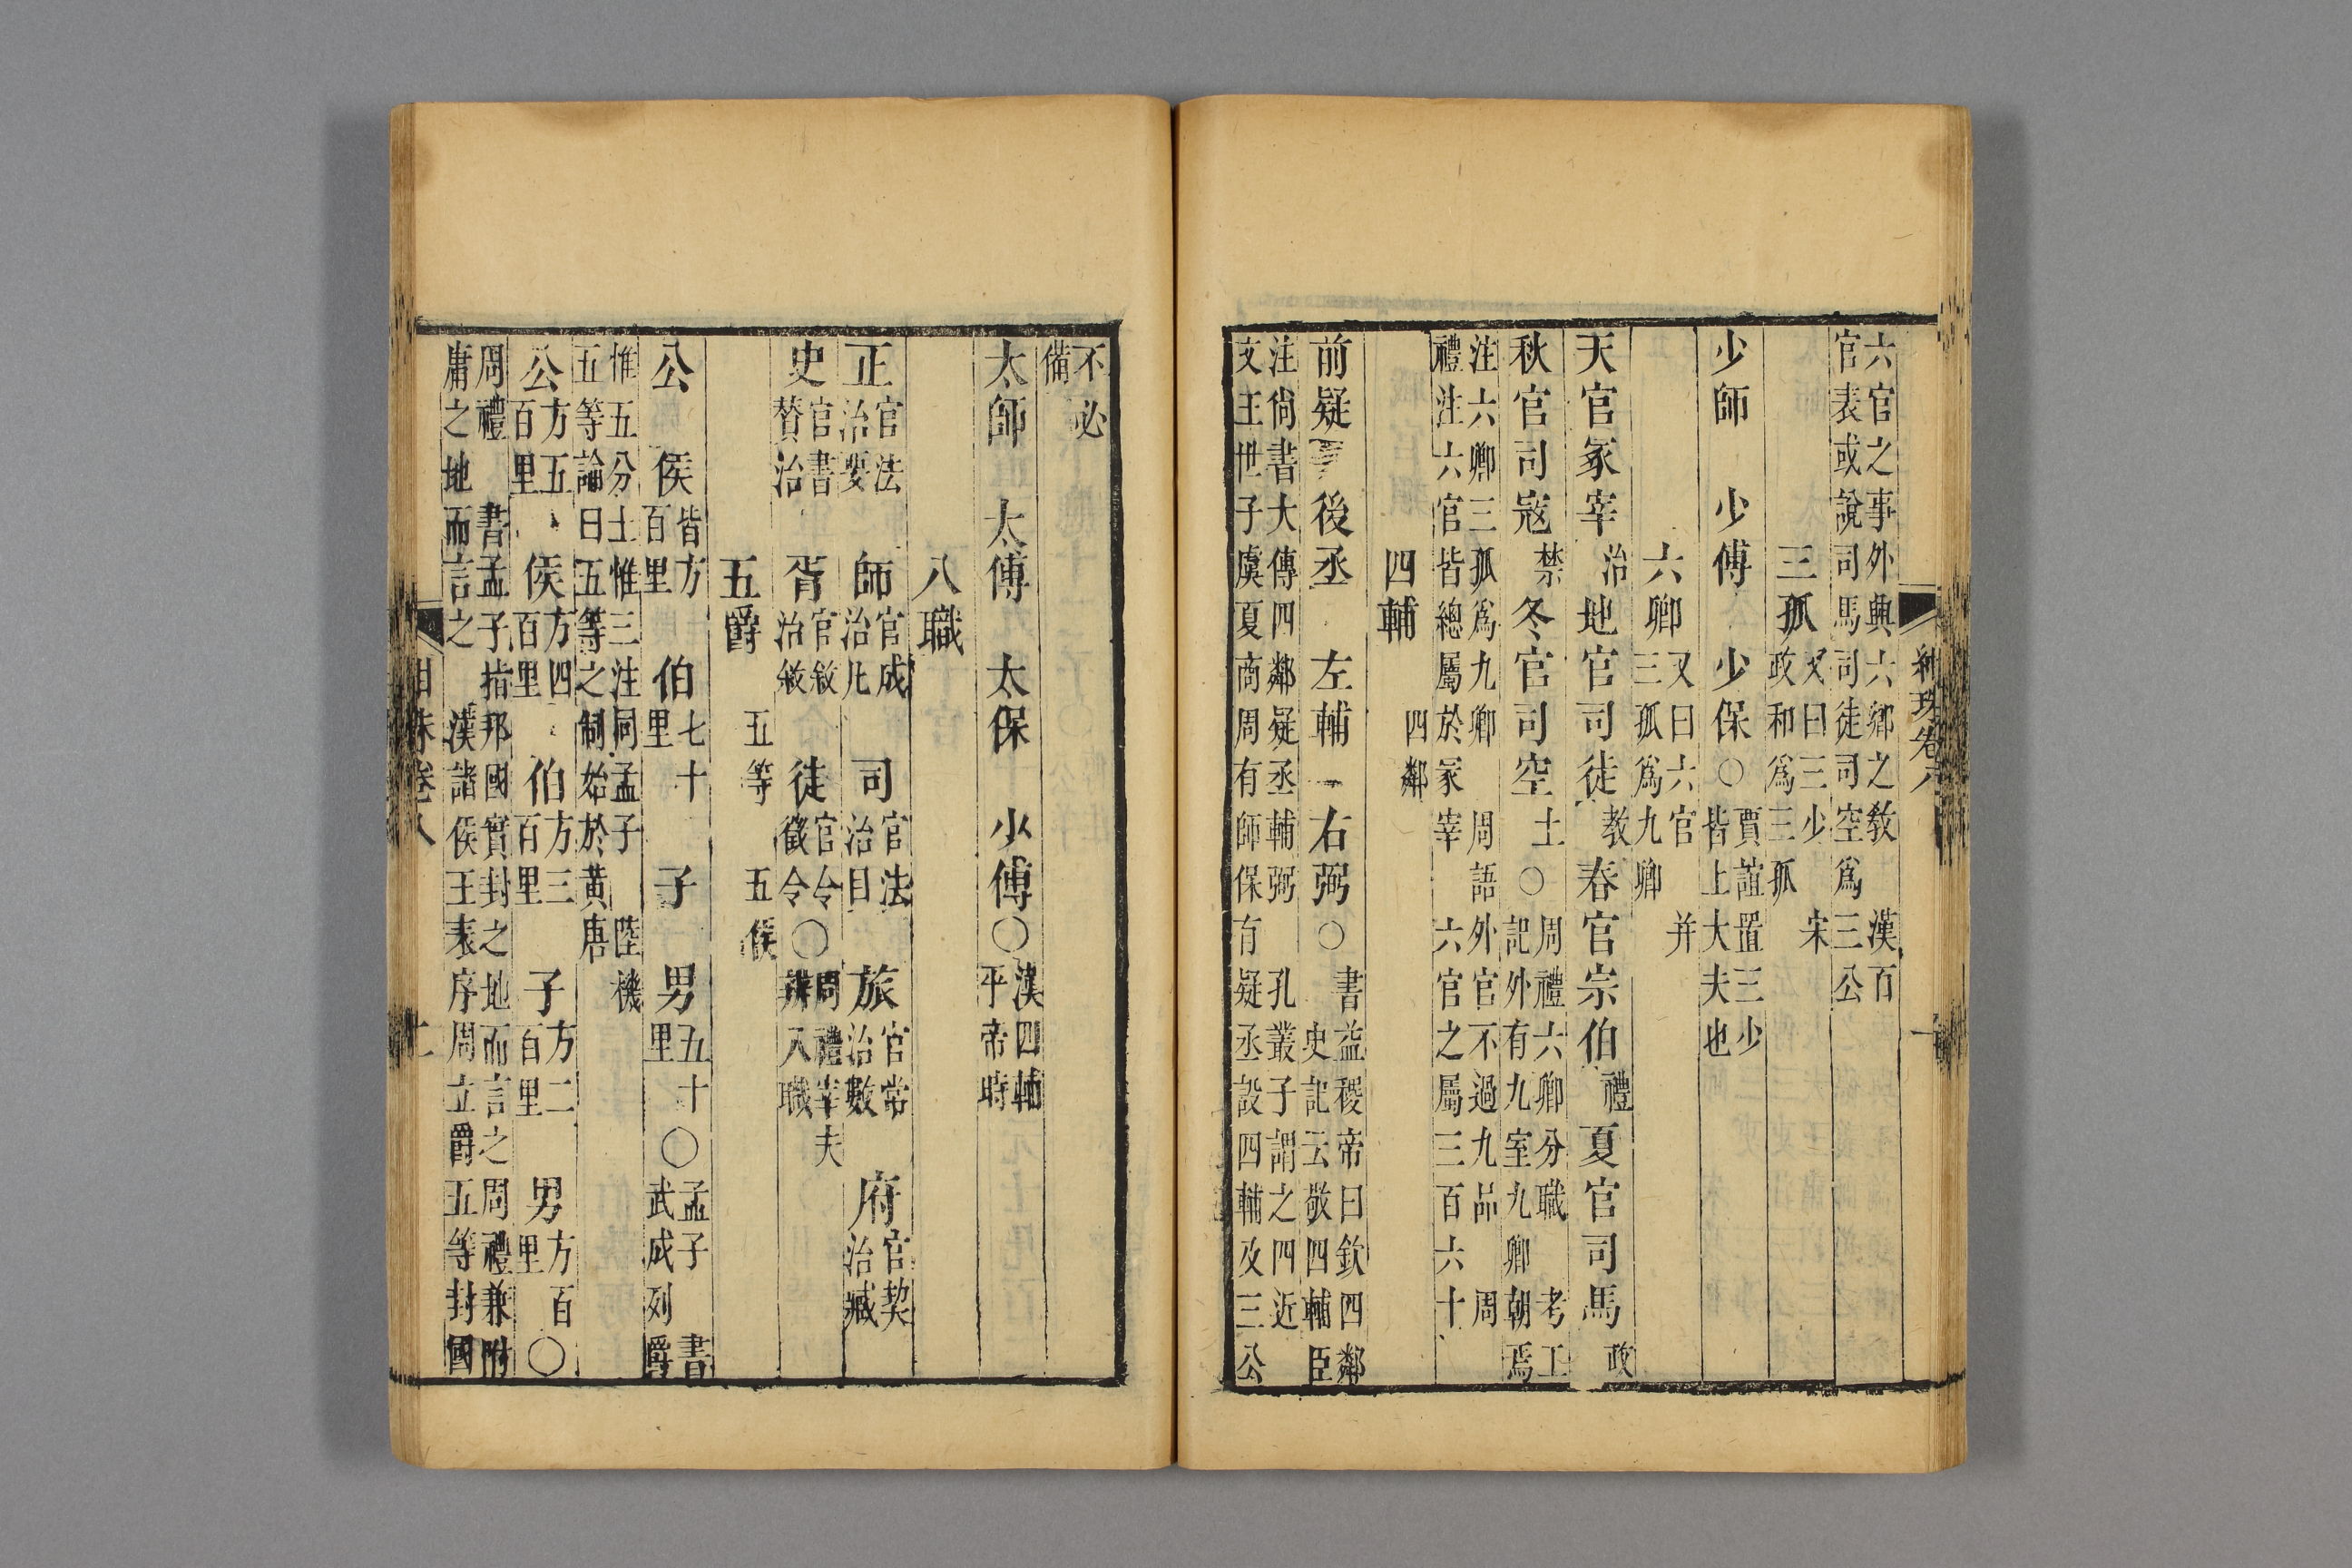 六官之事外與六卿之教　漢百
官表或說司馬司徒司空爲三公
三孤　又曰三少　宋
政和爲三孤
少師　少傅　少保〇　賈誼置三少
皆上大夫也
六卿　又曰六官　并
三孤爲九卿
天官冢宰治　地官司徒教　春官宗伯禮　夏官司馬政
秋官司寇禁　冬官司空土〇　周禮六卿分職　考工
記外有九室九卿朝焉
注六卿三孤爲九卿　周語外官不過九品　周
禮注六官皆總屬於冢宰　六官之屬三百六十
四輔　四鄰
前疑　後丞　左輔　右弼〇　書益稷帝曰欽四鄰
史記云敬四輔臣
注尙書大傳四鄰疑丞輔弼　孔叢子謂之四近
文王世子虞夏商周有師保有疑丞設四輔及三公
紺珠卷八
不必
備
太師　太傅　太保　少傅〇　漢四輔
平帝時
八職
正　官法
治要　師　官成
治凡　司　官法
治目　旅　官常
治數　府　官契
治藏
史　官書
賛治　胥　官敘
治敘　徒　官令
徵令〇　周禮宰夫
辨八職
五爵　五等　五侯
公　侯　皆方
百里　伯　七十
里　子　男　五十
里〇　孟子　書
武成列爵
惟五分土惟三注同孟子　陸機
五等論曰五等之制始於黃唐
公　方五
百里　侯　方四
百里　伯　方三
百里　子　方二
百里　男　方百
里〇
周禮　書孟子指邦國實封之地而言之周禮兼附
庸之地而言之　漢諸侯王表序周立爵五等封國
紺珠卷八